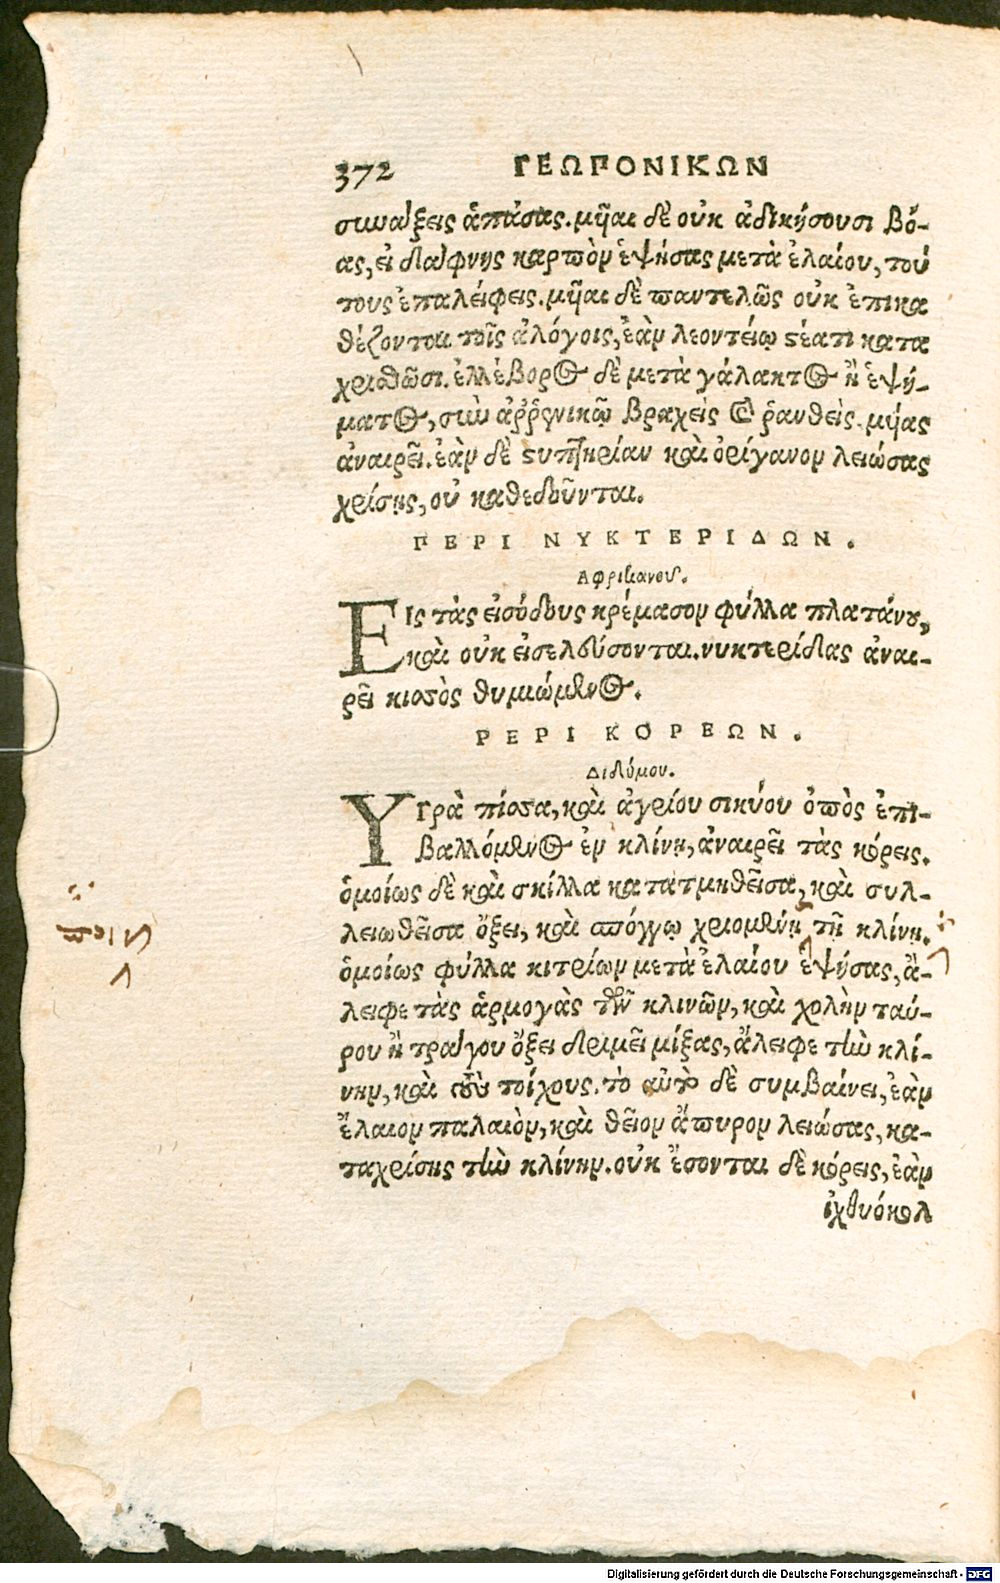 372 ΓΕΩΠΟΝΙΚΩΝ
συνάξεις ἁπάσας. μῆαι δὲ οὐκ ἀδικήσουσι βό-
ας, εἰ δάφνης καρπὸν ἑψήσας μετὰ ἐλαίου, τού
τους ἐπαλείφεις. μῆαι δὲ παντελῶς οὐκ ἐπικα
θέζονται τοῖς ἀλόγοις, ἐὰν λεοντείῳ στέατι κατα
χρισθῶσι. ἐλλέβορος δὲ μετὰ γάλακτος ἢ ἑψή-
ματος, σὺν ἀρρενικῷ βραχεὶς καὶ ῥανθεὶς. μήας
ἀναιρεῖ. ἐὰν δὲ στυπτηρίαν καὶ ὀρίγανον λειώσας
χρίσῃς, οὐ καθεδοῦνται.
ΠΕΡΙ ΝΥΚΤΕΡΙΔΩΝ.
Αφρικανοῦ.
ΕΙς τὰς εἰσόδους κρέμασον φύλλα πλατάνου,
καὶ οὐκ εἰσελεύσονται. νυκτερίδας ἀναι-
ρεῖ κισσὸς θυμιώμενος.
ΡΕΡΙ ΚΟΡΕΩΝ.
Διδύμου.
ΥΓρὰ πίσσα, καὶ ἀγρίου σικύου ὀπὸς ἐπι-
βαλλόμενος ἐν κλίνῃ, ἀναιρεῖ τὰς κόρεις.
ὁμοίως δὲ καὶ σκίλλα κατατμηθεῖσα, καὶ συλ-
λειωθεῖσα ὄξει, καὶ σπόγγῳ χριομένη τῇ κλίνῃ.
ὁμοίως φύλλα κιτρίων μετὰ ἐλαίου ἑψήσας, ἄ-
λειφε τὰς ἁρμογὰς τῶν κλινῶν, καὶ χολὴν ταύ-
ρου ἢ τράγου ὄξει δριμεῖ μίξας, ἄλειφε τὴν κλί-
νην, καὶ τοὺς τοίχους. τὸ αὐτὸ δὲ συμβαίνει, ἐὰν
ἔλαιον παλαιὸν, καὶ θεῖον ἄπυρον λειώσας, κα-
ταχρίσῃς τὴν κλίνην. οὐκ ἔσονται δὲ κόρεις, ἐὰν
ἰχθυόκολ
Digitalisierung gefördert durch die Deutsche Forschungsgemeinschaft - DFG